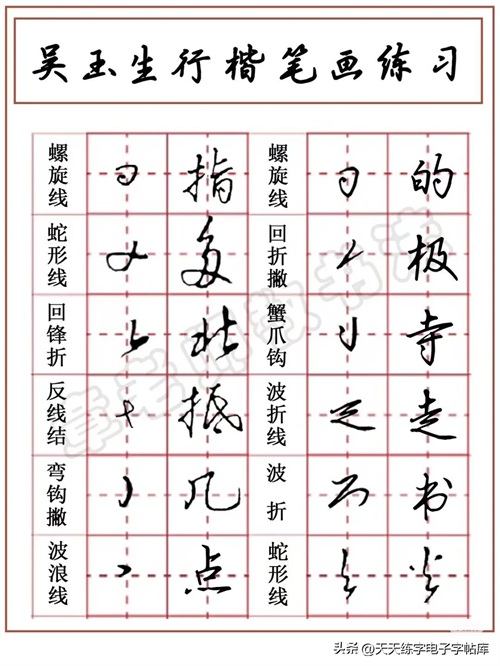 吴玉生行楷笔画练习
螺旋线 指 螺旋线 的
蛇形线 多 回折撇 极
回锋折 北 蟹爪钩 寺
反线结 抵 波折线 走
弯钩撇 几 波折 书
波浪线 点 蛇形线 火
头条 @天天练字电子字帖库